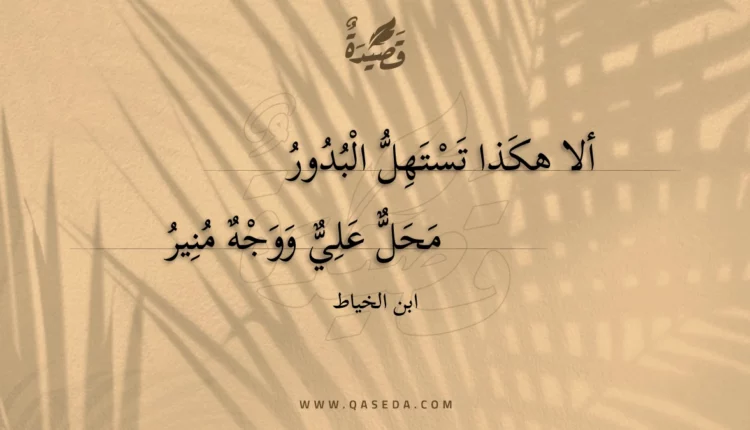 قَصِيدَةٌ
ألا هكَذا تَسْتَهِلُّ الْبُدُورُ
مَحَلٌّ عَلِيٌّ وَوَجْهٌ مُنِيرُ
ابن الخياط
WWW.QASEDA.COM